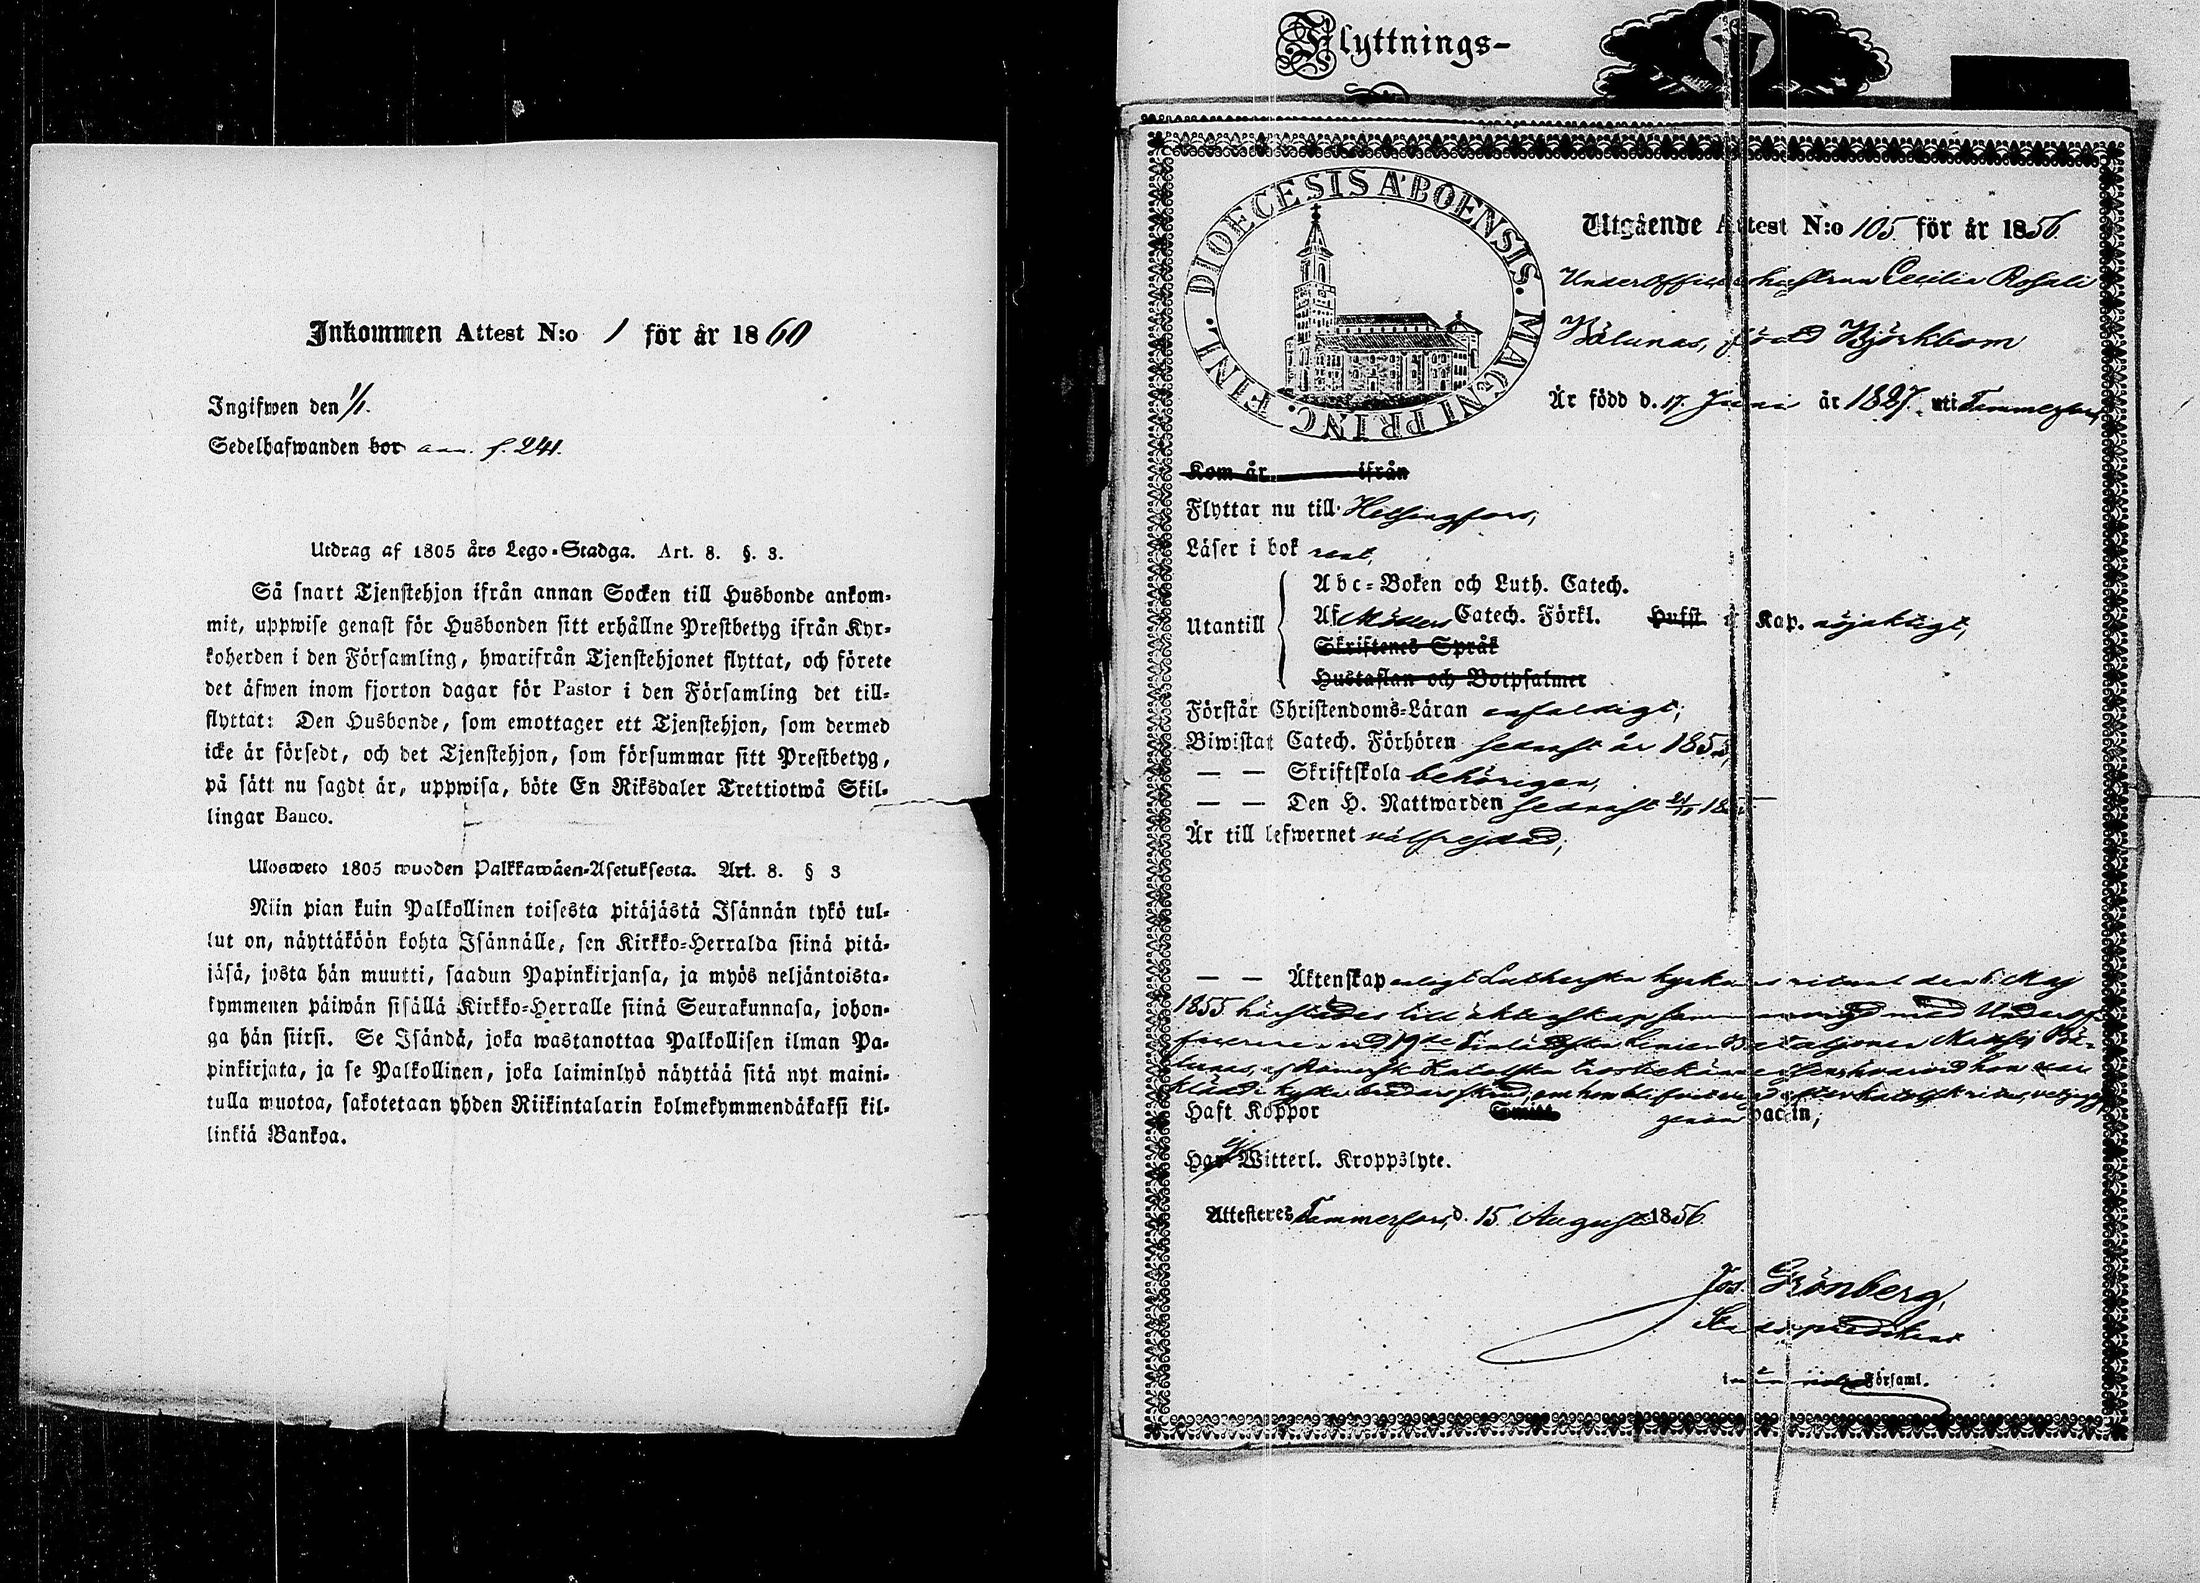 Inkommen Attest N:o 1 för år 1860
Ingifwen den 1/1.
Sedelhafwanden bor ann. f. 241.
Utdrag af 1805 års Lego-Stadga. Art. 8. §. 3.
Så snart Tjenstehjon ifrån annan Socken till Husbonde ankom-
mit, uppwise genast för Husbonden sitt erhållne Prestbetyg ifrån Kyr-
koherden i den Församling, hwarifrån Tjenstehjonet flyttat, och förete
det äfwen inom fjorton dagar för Pastor i den Församling det till-
flyttat: Den Husbonde, som emottager ett Tjenstehjon, som dermed
icke är försedt, och det Tjenstehjon, som försummar sitt Prestbetyg,
på sätt nu sagdt är, uppwisa, böte En Riksdaler Trettiotwå Skil-
lingar Banco.
Ulosweto 1805 wuoden Palkkawäen-Asetuksesta. Art. 8. § 3
Niin pian kuin Palkollinen toisesta pitäjästä Isännän tykö tul-
lut on, näyttäköön kohta Isännälle, sen Kirkko-Herralda siinä pitä-
jäsä, josta hän muutti, saadun Papinkirjansa, ja myös neljäntoista-
kymmenen päiwän sisällä Kirkko-Herralle siinä Seurakunnasa, johon-
ga hän siirsi. Se Isändä, joka wastanottaa Palkollisen ilman Pa-
pinkirjata, ja se Palkollinen, joka laiminlyö näyttää sitä nyt maini-
tulla muotoa, sakotetaan yhden Riikintalarin kolmekymmendäkaksi kil-
linkiä Bankoa.
Flyttnings-
DIOECESIS ABOENSIS. MAGNI PRINC. FINL.
Utgående Attest N:o 105 för år 1856
Underofficershustrun Cecilia Rosali
Bölunas, född Björkbom
Är född d. 17. Juni år 1827. uti Tammerfors
Kom år ifrån
Flyttar nu till Helsingfors,
Läser i bok rent,
Utantill
Abc-Boken och Luth. Catech.
Af Möllers Catech. Förkl. Hufst. Kap. nöjaktigt,
Skriftenes Språk
Hustaflan och Botpsalmer
Förstår Christendoms-Läran enfaldigt;
Biwistat Catech. Förhören sednast år 1855,
— — Skriftskola behörigen,
— — Den H. Nattwarden sednast
Är till lefwernet välfrejdad;
— — Äktenskap enligt Lutherska kyrkans ritual den 6. Maj
1855 härstädes till äktenskap sammanvigd med Underof-
ficeren vid 19de Finländska Linie Bataljonen
af Romersk Katolska trosbekännelsen, hvarvid hon var
klädd i
Haft Koppor Smitt genom vaccin,
Har ej Witterl. Kroppslyte.
Attesteres Tammerfors, d. 15. Augusti 1856
Jos. Grönberg,
Stadspredikant
i Församl.